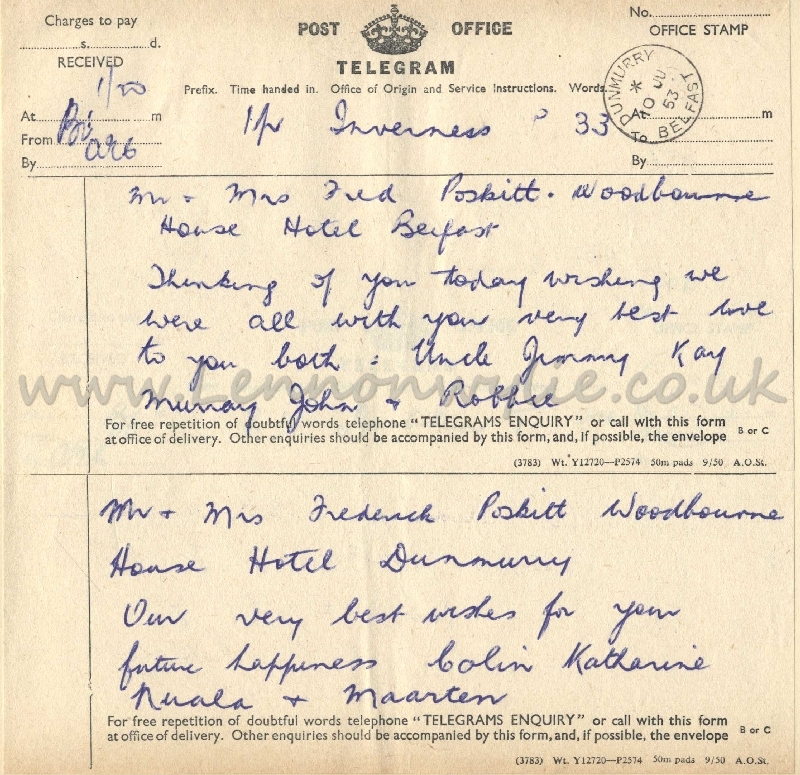 Charges to pay
s. d.
RECEIVED
POST OFFICE
TELEGRAM
No.
OFFICE STAMP
Prefix. Time handed in. Office of Origin and Service Instructions. Words.
At m
From
By
1/p Inverness 33
DUNMURRY
10 JU
53
BELFAST
At m
To
By
Mr + Mrs Fred Poskitt. Woodbourne
House Hotel Belfast
Thinking of you today wishing we
were all with you very best love
to you both : Uncle Jimmy Kay
Murray John + Robbie
www.Lennonwylie.co.uk
For free repetition of doubtful words telephone "TELEGRAMS ENQUIRY" or call with this form
at office of delivery. Other enquiries should be accompanied by this form, and, if possible, the envelope
B or C
(3783) Wt. Y12720—P2574 50m pads 9/50 A.O.St.
Mr + Mrs Frederick Poskitt Woodbourne
House Hotel Dunmurry
Our very best wishes for your
future happiness Colin Katharine
Nuala + Maarten
For free repetition of doubtful words telephone "TELEGRAMS ENQUIRY" or call with this form
at office of delivery. Other enquiries should be accompanied by this form, and, if possible, the envelope
B or C
(3783) Wt. Y12720—P2574 50m pads 9/50 A.O.St.